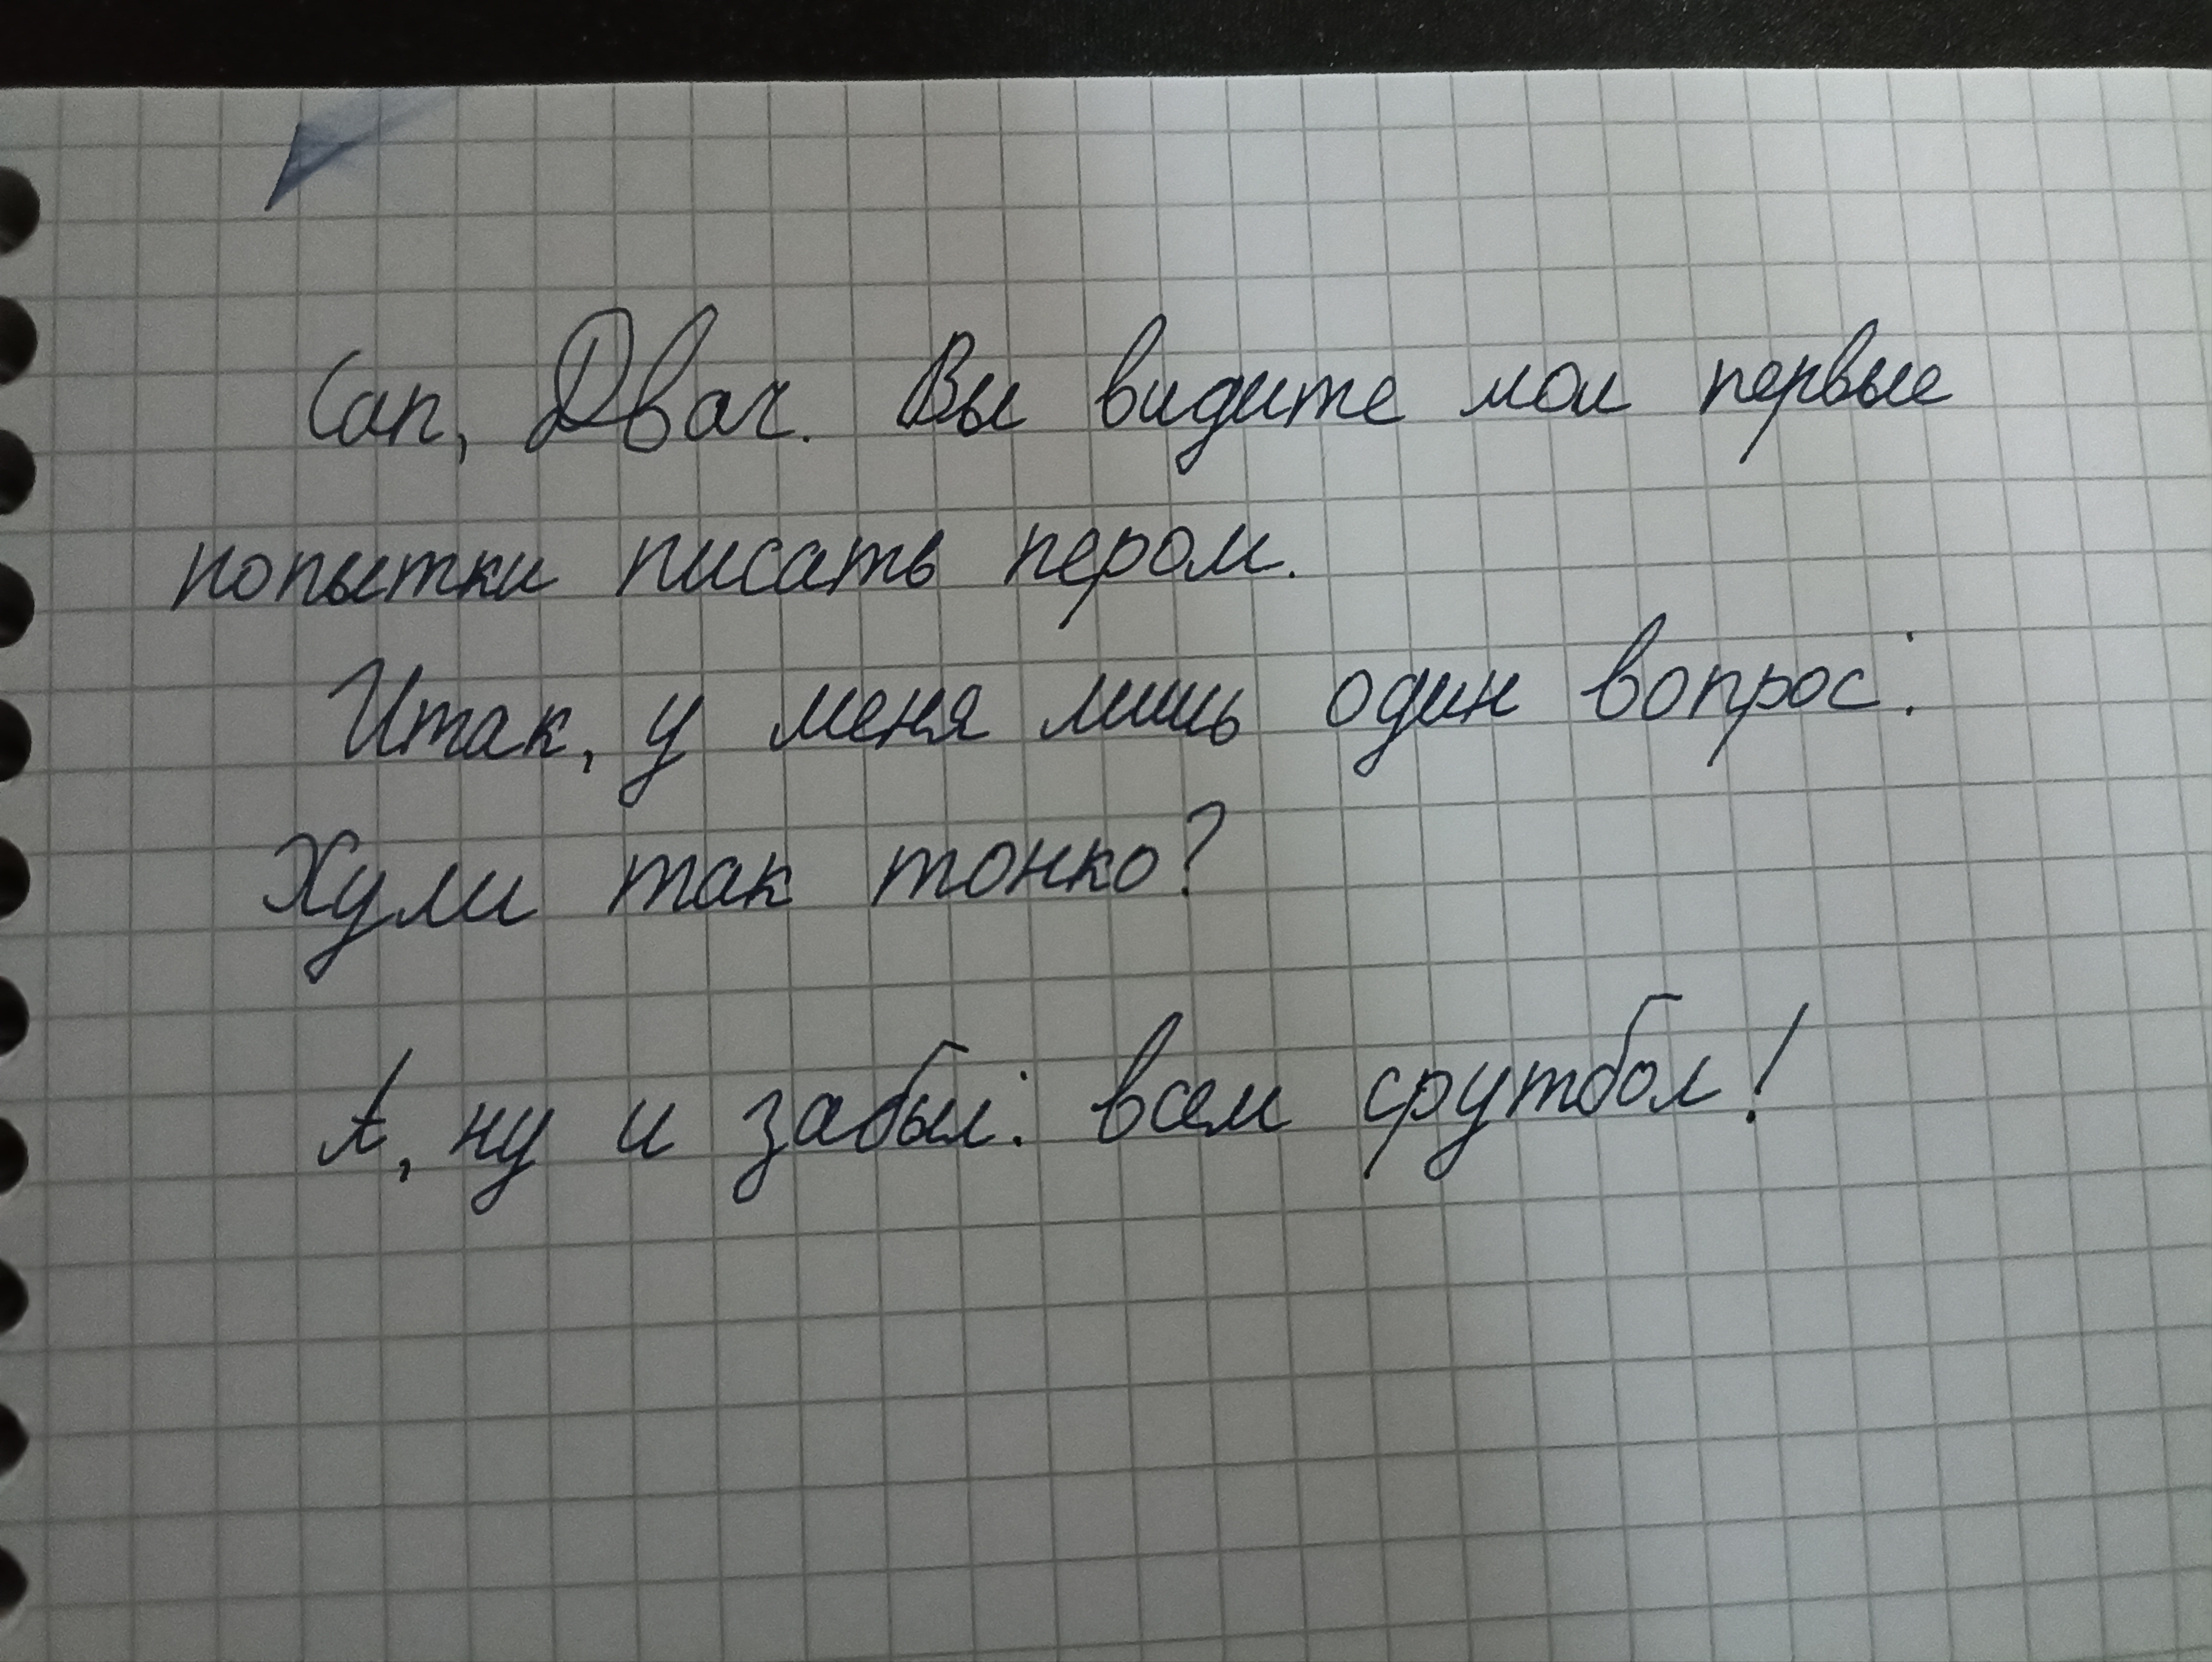 Сап, Двач. Вы видите мои первые
попытки писать пером.
Итак, у меня лишь один вопрос:
Хули так тонко?
А, ну и забыл: всем срутбол!